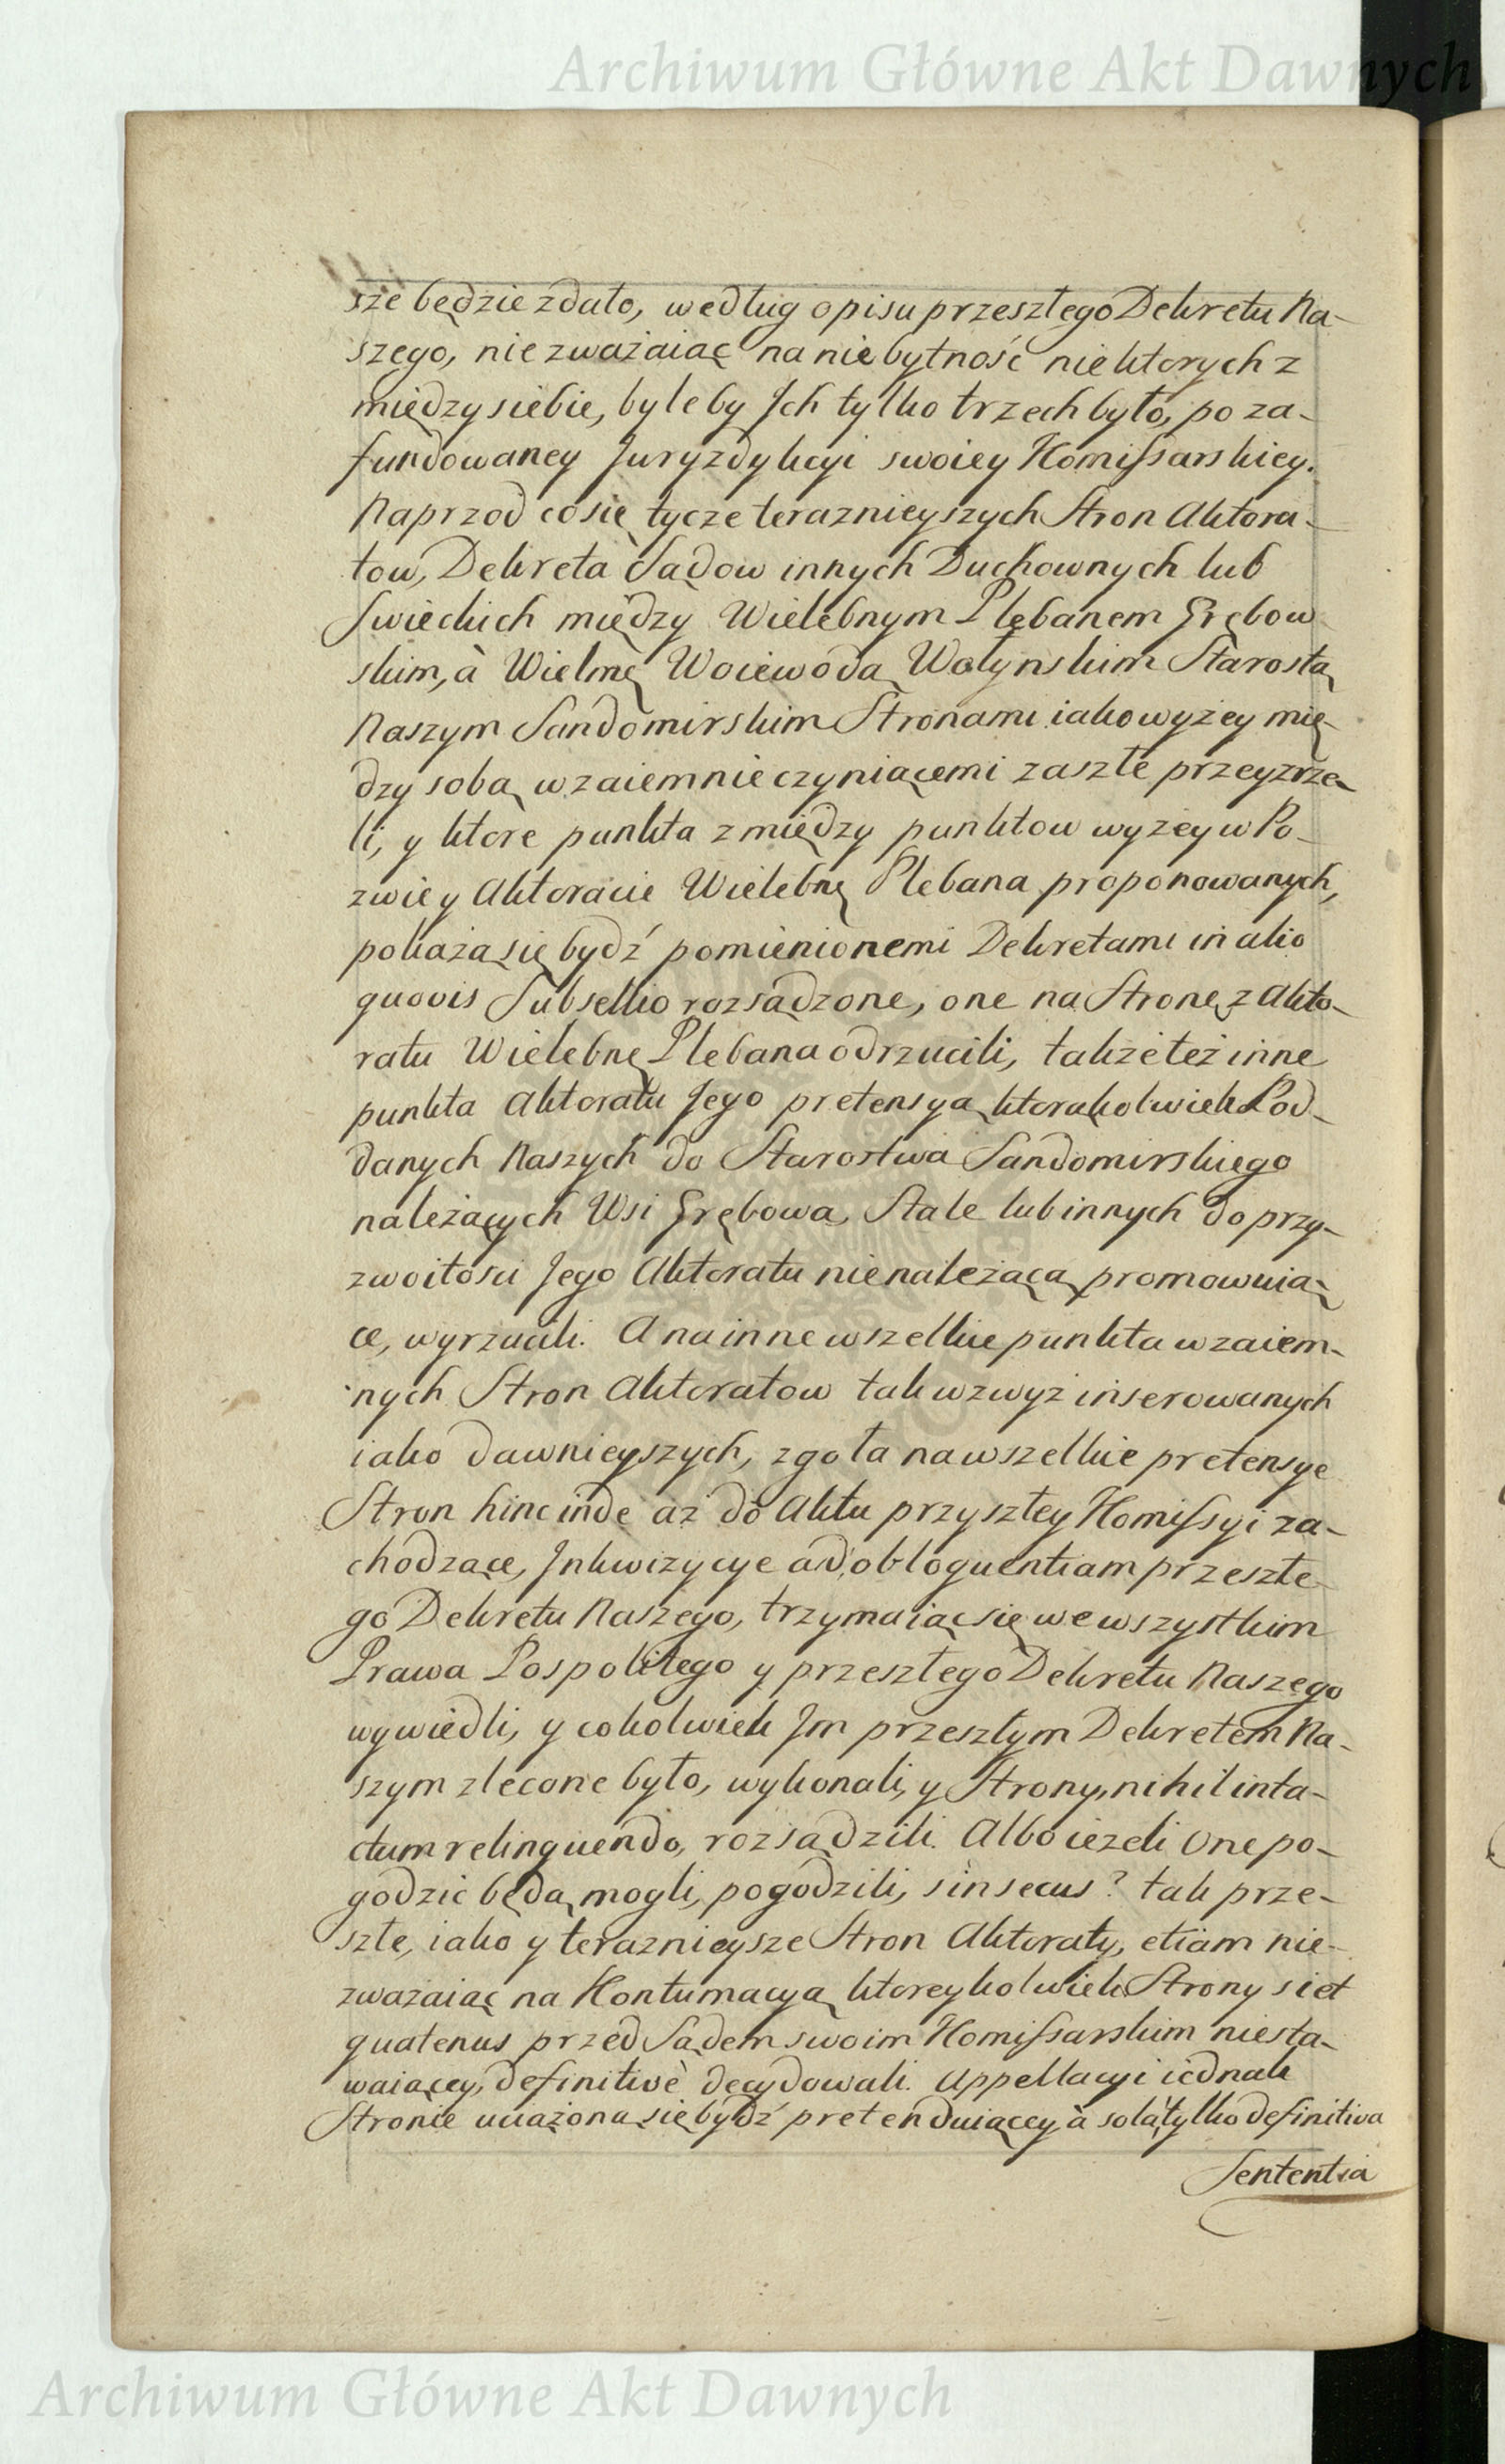 Archiwum Główne Akt Dawnych
sze będzie zdało, według opisu przeszłego Dekretu Na-
szego, nie zważaiąc na niebytność niektorych z
między siebie, byleby Ich tylko trzech było, po za-
fundowaney Juryzdykcyi swoiey Komissarskiey.
Naprzod co się tycze teraznieyszych Stron Aktora-
tow, Dekreta Sądow innych Duchownych lub
Swieckich między Wielebnym Plebanem Grębow-
skim, à Wielmę Woiewodą Wołynskim Starostą
Naszym Sandomirskim Stronami iako wyżey mię-
dzy sobą wzaiemnie czyniącemi zaszłe przeyzrze-
li, y ktore punkta z między punktow wyżey w Po-
zwie y Aktoracie Wielebnę Plebana proponowanych,
pokażą się bydź pomienionemi Dekretami in alio
quovis Subsellio rozsądzone, one na Stronę z Akto-
ratu Wielebnę Plebana odrzucili, także też inne
punkta Aktoratu Jego pretensyą ktorąkolwiek Pod-
danych Naszych do Starostwa Sandomirskiego
należących Wsi Grębowa, Stale lub innych do przy-
zwoitości Jego Aktoratu nienależącą promowuią-
ce, wyrzucili. A na inne wszelkie punkta wzaiem-
nych Stron Aktoratow tak wzwyż inserowanych
iako dawnieyszych, zgoła na wszelkie pretensye
Stron hinc inde aż do Aktu przyszłey Komissyi za-
chodzące, Inkwizycye ad obloquentiam przeszłe-
go Dekretu Naszego, trzymaiąc się we wszystkim
Prawa Pospolitego y przeszłego Dekretu Naszego
wywiedli, y cokolwiek Im przeszłym Dekretem Na-
szym zlecone było, wykonali, y Strony, nihil inta-
ctum relinquendo, rozsądzili. Albo ieżeli One po-
godzić będą mogli, pogodzili, sin secus? tak prze-
szłe, iako y teraznieysze Stron Aktoraty, etiam nie-
zważaiąc na Kontumacyą ktoreykolwiek Strony si et
quatenus przed Sądem swoim Komissarskim niesta-
waiącey, definitivè decydowali. Appellacyi iednak
Stronie uciążoną się bydź pretenduiącey à solâ tylko definitiva
Sententia
Archiwum Główne Akt Dawnych